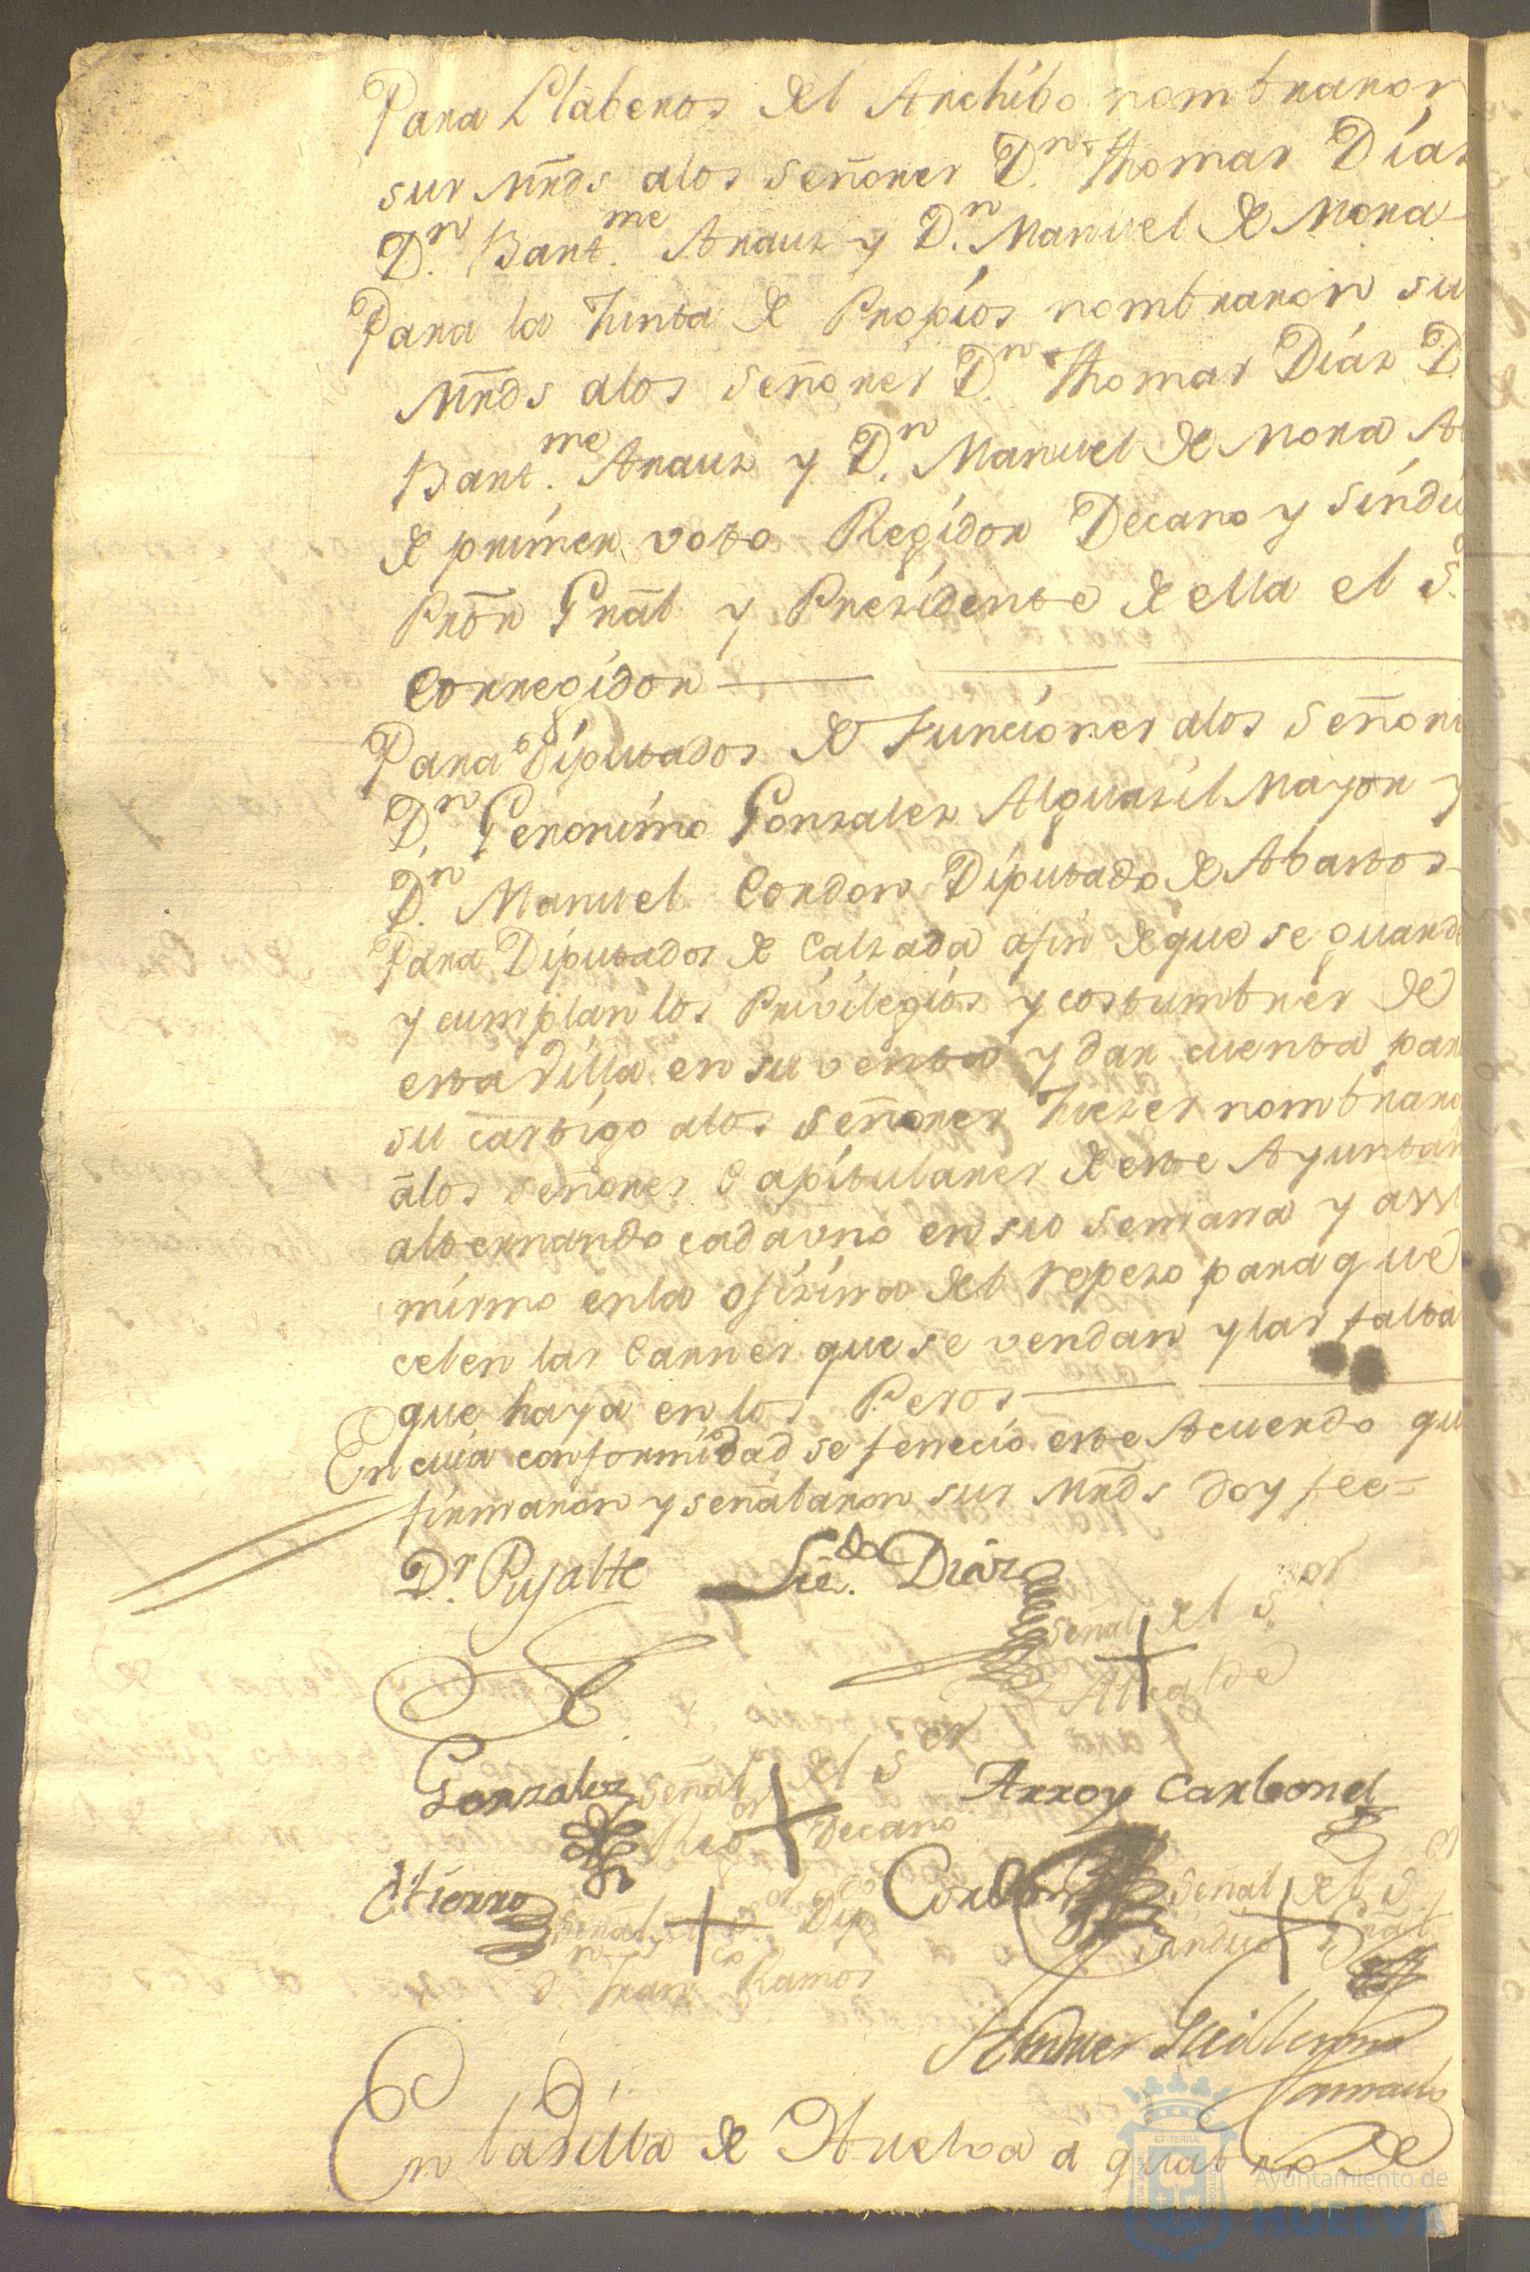 Para Llaberos del Archibo nombraron
sus Mrds alos señores Dn. Thomas Díaz
Dn. Bartme. Arauz y Dn. Manuel de Mora
Para la Junta de Propíos nombraron su
Mrds alos señores Dn. Thomas Díaz D.
Bartme. Arauz y Dn. Manuel de Mora Al
de prímer voto Regídor Decano y Síndi
Pror Gral y Presídente de ella el S.
Corregídor
Para Díputados de Funcíones alos Señore
Dn. Geronímo Gonzalez Alguazíl Mayor y
Dn. Manuel Cordon Díputado de Abastos
Para Díputados de Calzada afin de que se guarde
y cumplan los Prívílegíos y costumbres de
esta Villa en su venta y dar cuenta par
su castígo alos señores Juezes nombraro
alos señores Capítulares de este Ayuntam
alternando cada uno en su semana y assi
mismo en la ofízína del repeso para que
celen las Carnes que se vendan y las falta
que haya en los Pesos
En cuía conformídad se fenecío este Acuerdo qu
firmaron y señalaron sus Mrds doy fee=
Dr. Pujalte Licdo. Díaz
Señal del Sor
Alcalde
Gonzalez Señal del Sor Arroy Carbonel
Rexor Decano
Señal del Sor Dipdo Cordon Señal del S
Síndico Gral
Dn Franco Ramos
Guillermo
Camacho
En la Villa de Huelva a quatro de
ET TERRAE
Ayuntamiento de
HUELVA